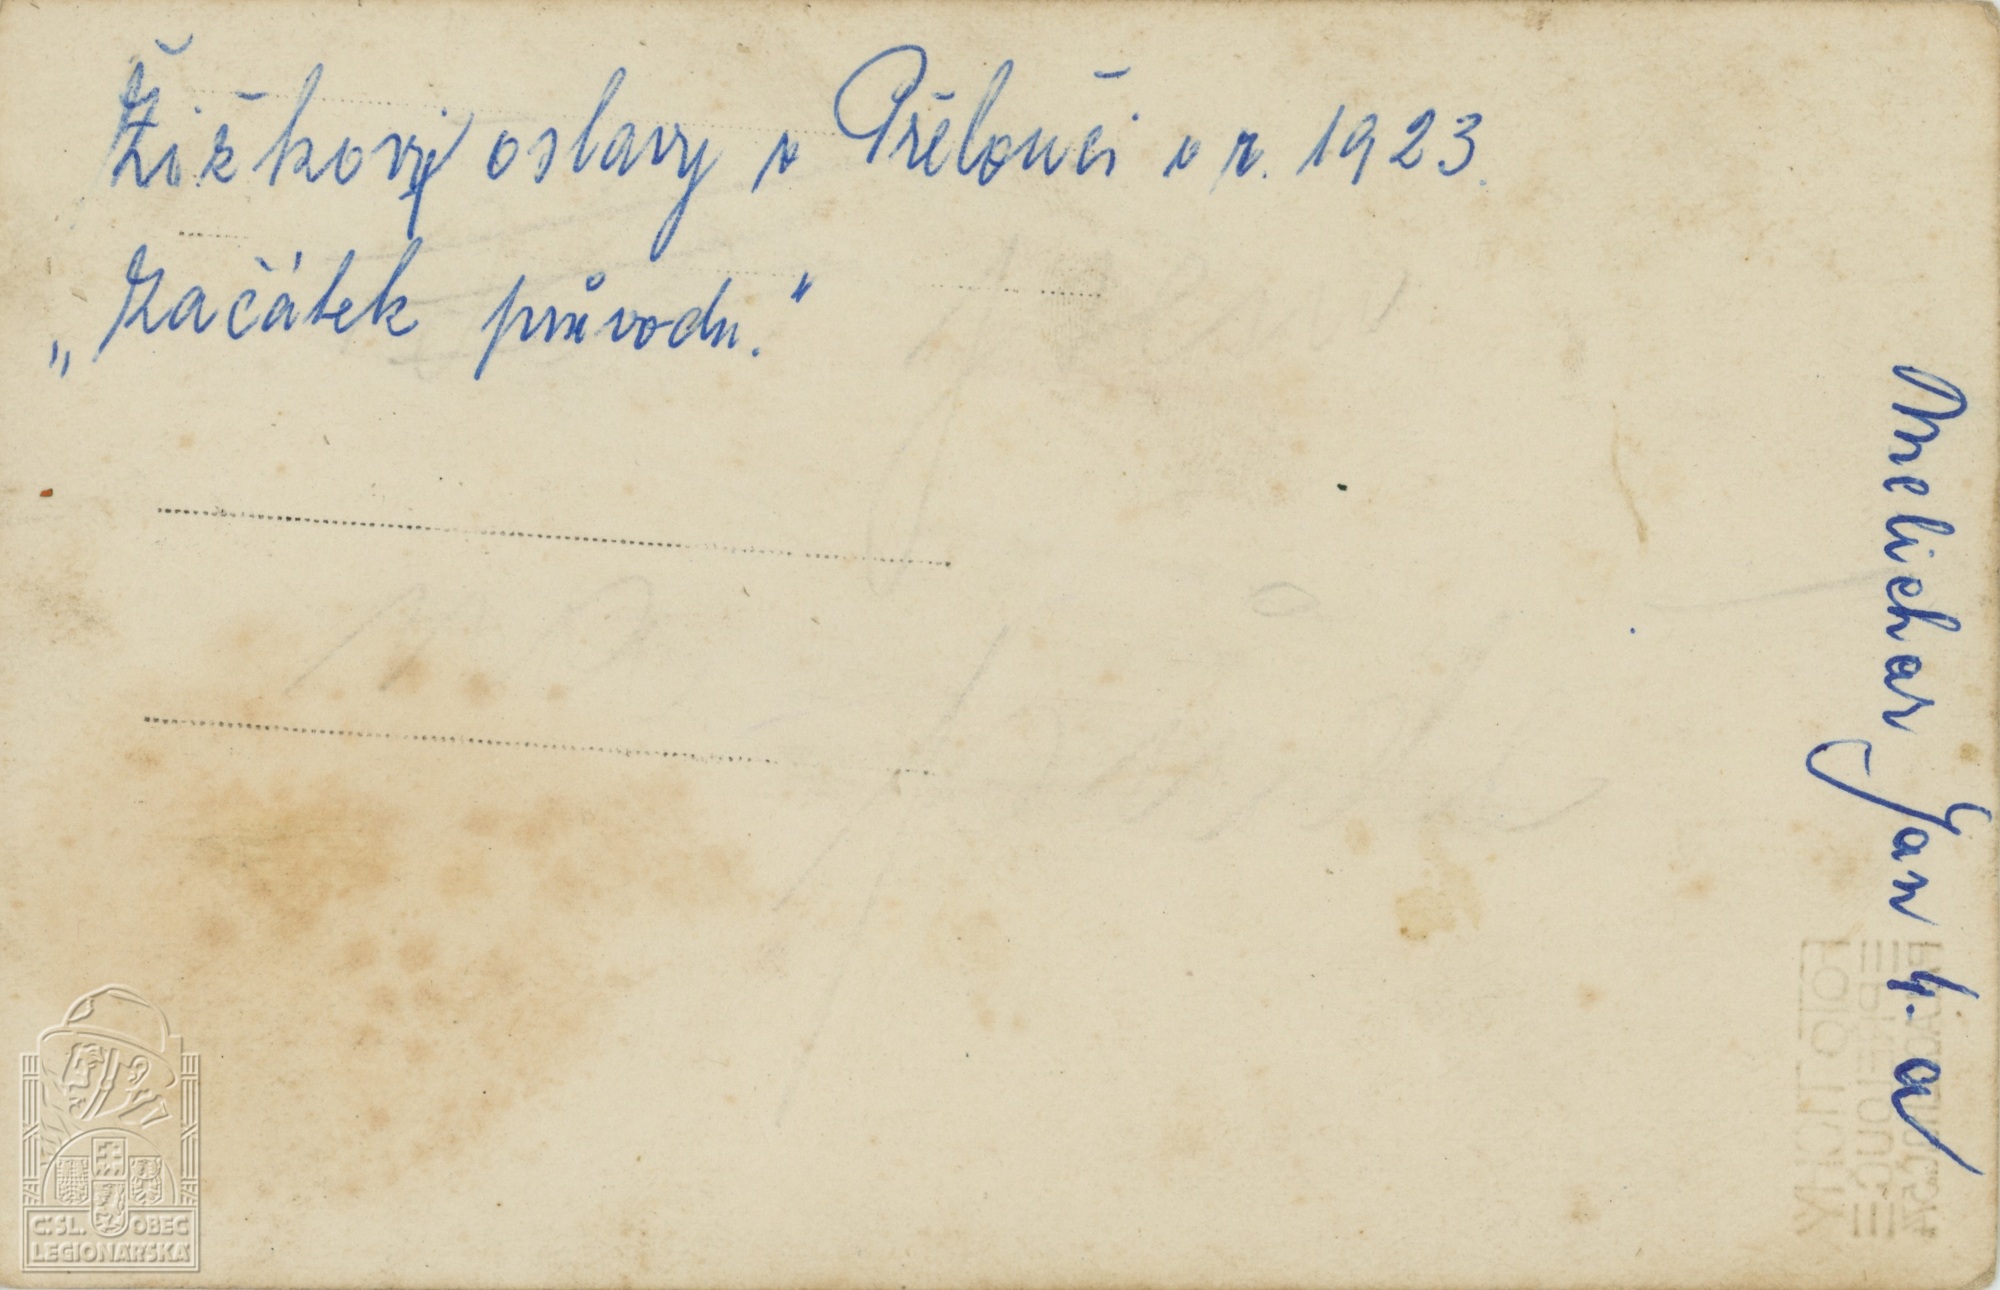 Žižkovy oslavy v Přelouči v r. 1923.
„Začátek průvodu."
Melichar Jan 4. a
FOTO TICHÝ
PŘELOUČ
Č:SL. OBEC
LEGIONÁŘSKÁ